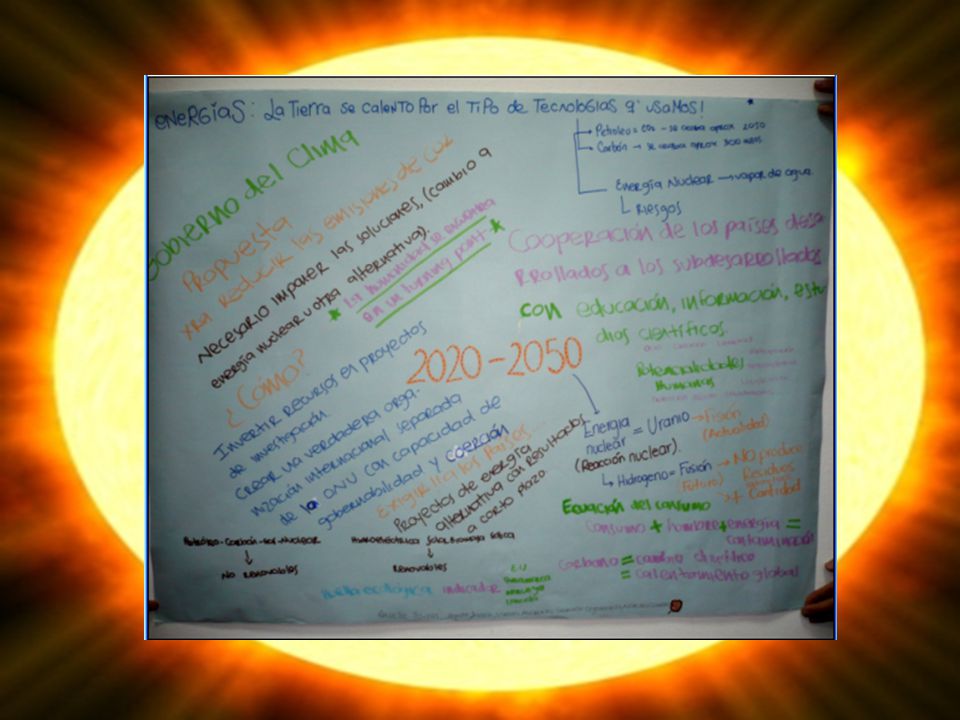 ENERGÍAS: La Tierra se calentó por el tipo de tecnologías q' usamos!
Petróleo = CO2 - se acaba aprox 2050
Carbón → se acaba aprox 300 años
Energía Nuclear → vapor de agua.
Riesgos
Gobierno del Clima
Propuesta
xra reducir las emisiones de CO2
Necesario imponer las soluciones, (cambio a
energía nuclear u otra alternativa).
* La humanidad se encuentra *
en un turning point
Cooperación de los países desa
rrollados a los subdesarrollados
con educación, información, estu
dios científicos.
Potencialidades
Humanas
¿Cómo?
Invertir recursos en proyectos
de investigación.
Crear una verdadera orga-
nización internacional separada
de la ONU con capacidad de
gobernabilidad y coerción
Exigir a los países...
Proyectos de energía
alternativa con resultados
a corto plazo.
2020-2050
Energía nuclear = Uranio → Fisión
(Actualidad)
(Reacción nuclear).
Hidrógeno = Fusión → No produce
(Futuro) Residuos
→ + Cantidad
Ecuación del consumo
Consumo + hombre + energía =
contaminación
Carbono = cambio climático
= calentamiento global
Petróleo-Carbón-Gas-Nuclear
↓
No Renovables
Hidroeléctrica Solar Biomasa Eólica
↓
Renovables
Huella ecológica indicador